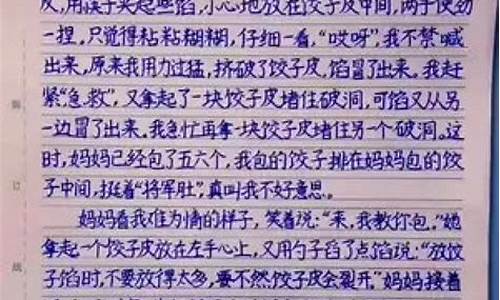 皮，用筷子夹起些馅，小心地放在饺子皮中间，两手使劲
一捏，只觉得粘粘糊糊，仔细一看，“哎呀”，我不禁喊
出来，原来我用力过猛，挤破了饺子皮，馅冒了出来。我赶
紧“急救”，又拿起了一块饺子皮堵住破洞，可馅又从另
一边冒了出来。我急忙再拿一块饺子皮堵住另一个破洞。这
时，妈妈已经包了五六个，我包的饺子排在妈妈包的饺
子中间，挺着“将军肚”，真叫我不好意思。
妈妈看我难为情的样子，笑着说：“来，我教你包。”她
拿起一个饺子皮放在左手心上，又用勺子舀了点馅说：“放饺
子馅时，不要放得太多，要不然饺子皮会裂开。”妈妈接着
订
线